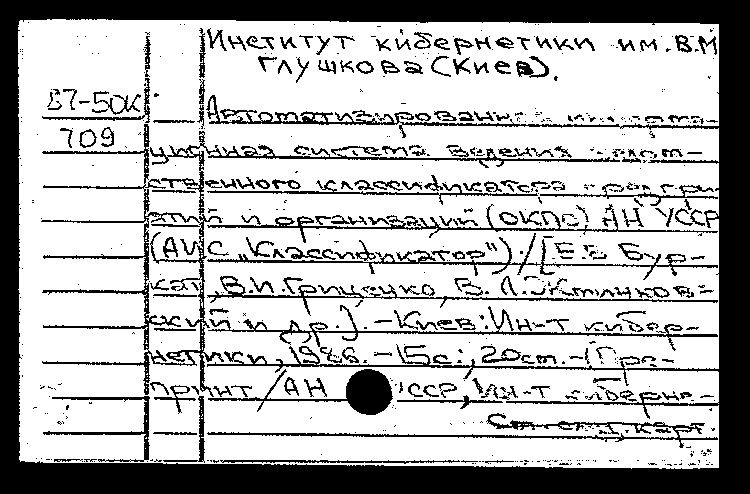 Институт кибернетики им. В.М
Глушкова (Киев).
В7-50К
709
Автоматизированная информа-
ционная система ведения ведом-
ственного классификатора предпри-
ятий и организаций (ОКПО) АН УССР
(АИС „Классификатор") / [Е.Б Бур-
кат, В.И. Гриценко,
ский и др.]. - Киев: Ин-т кибер-
нетики, 1986. - 15с.; 20см. - (Пре-
принт / АН УССР, Ин-т киберне-
См. след. карт.